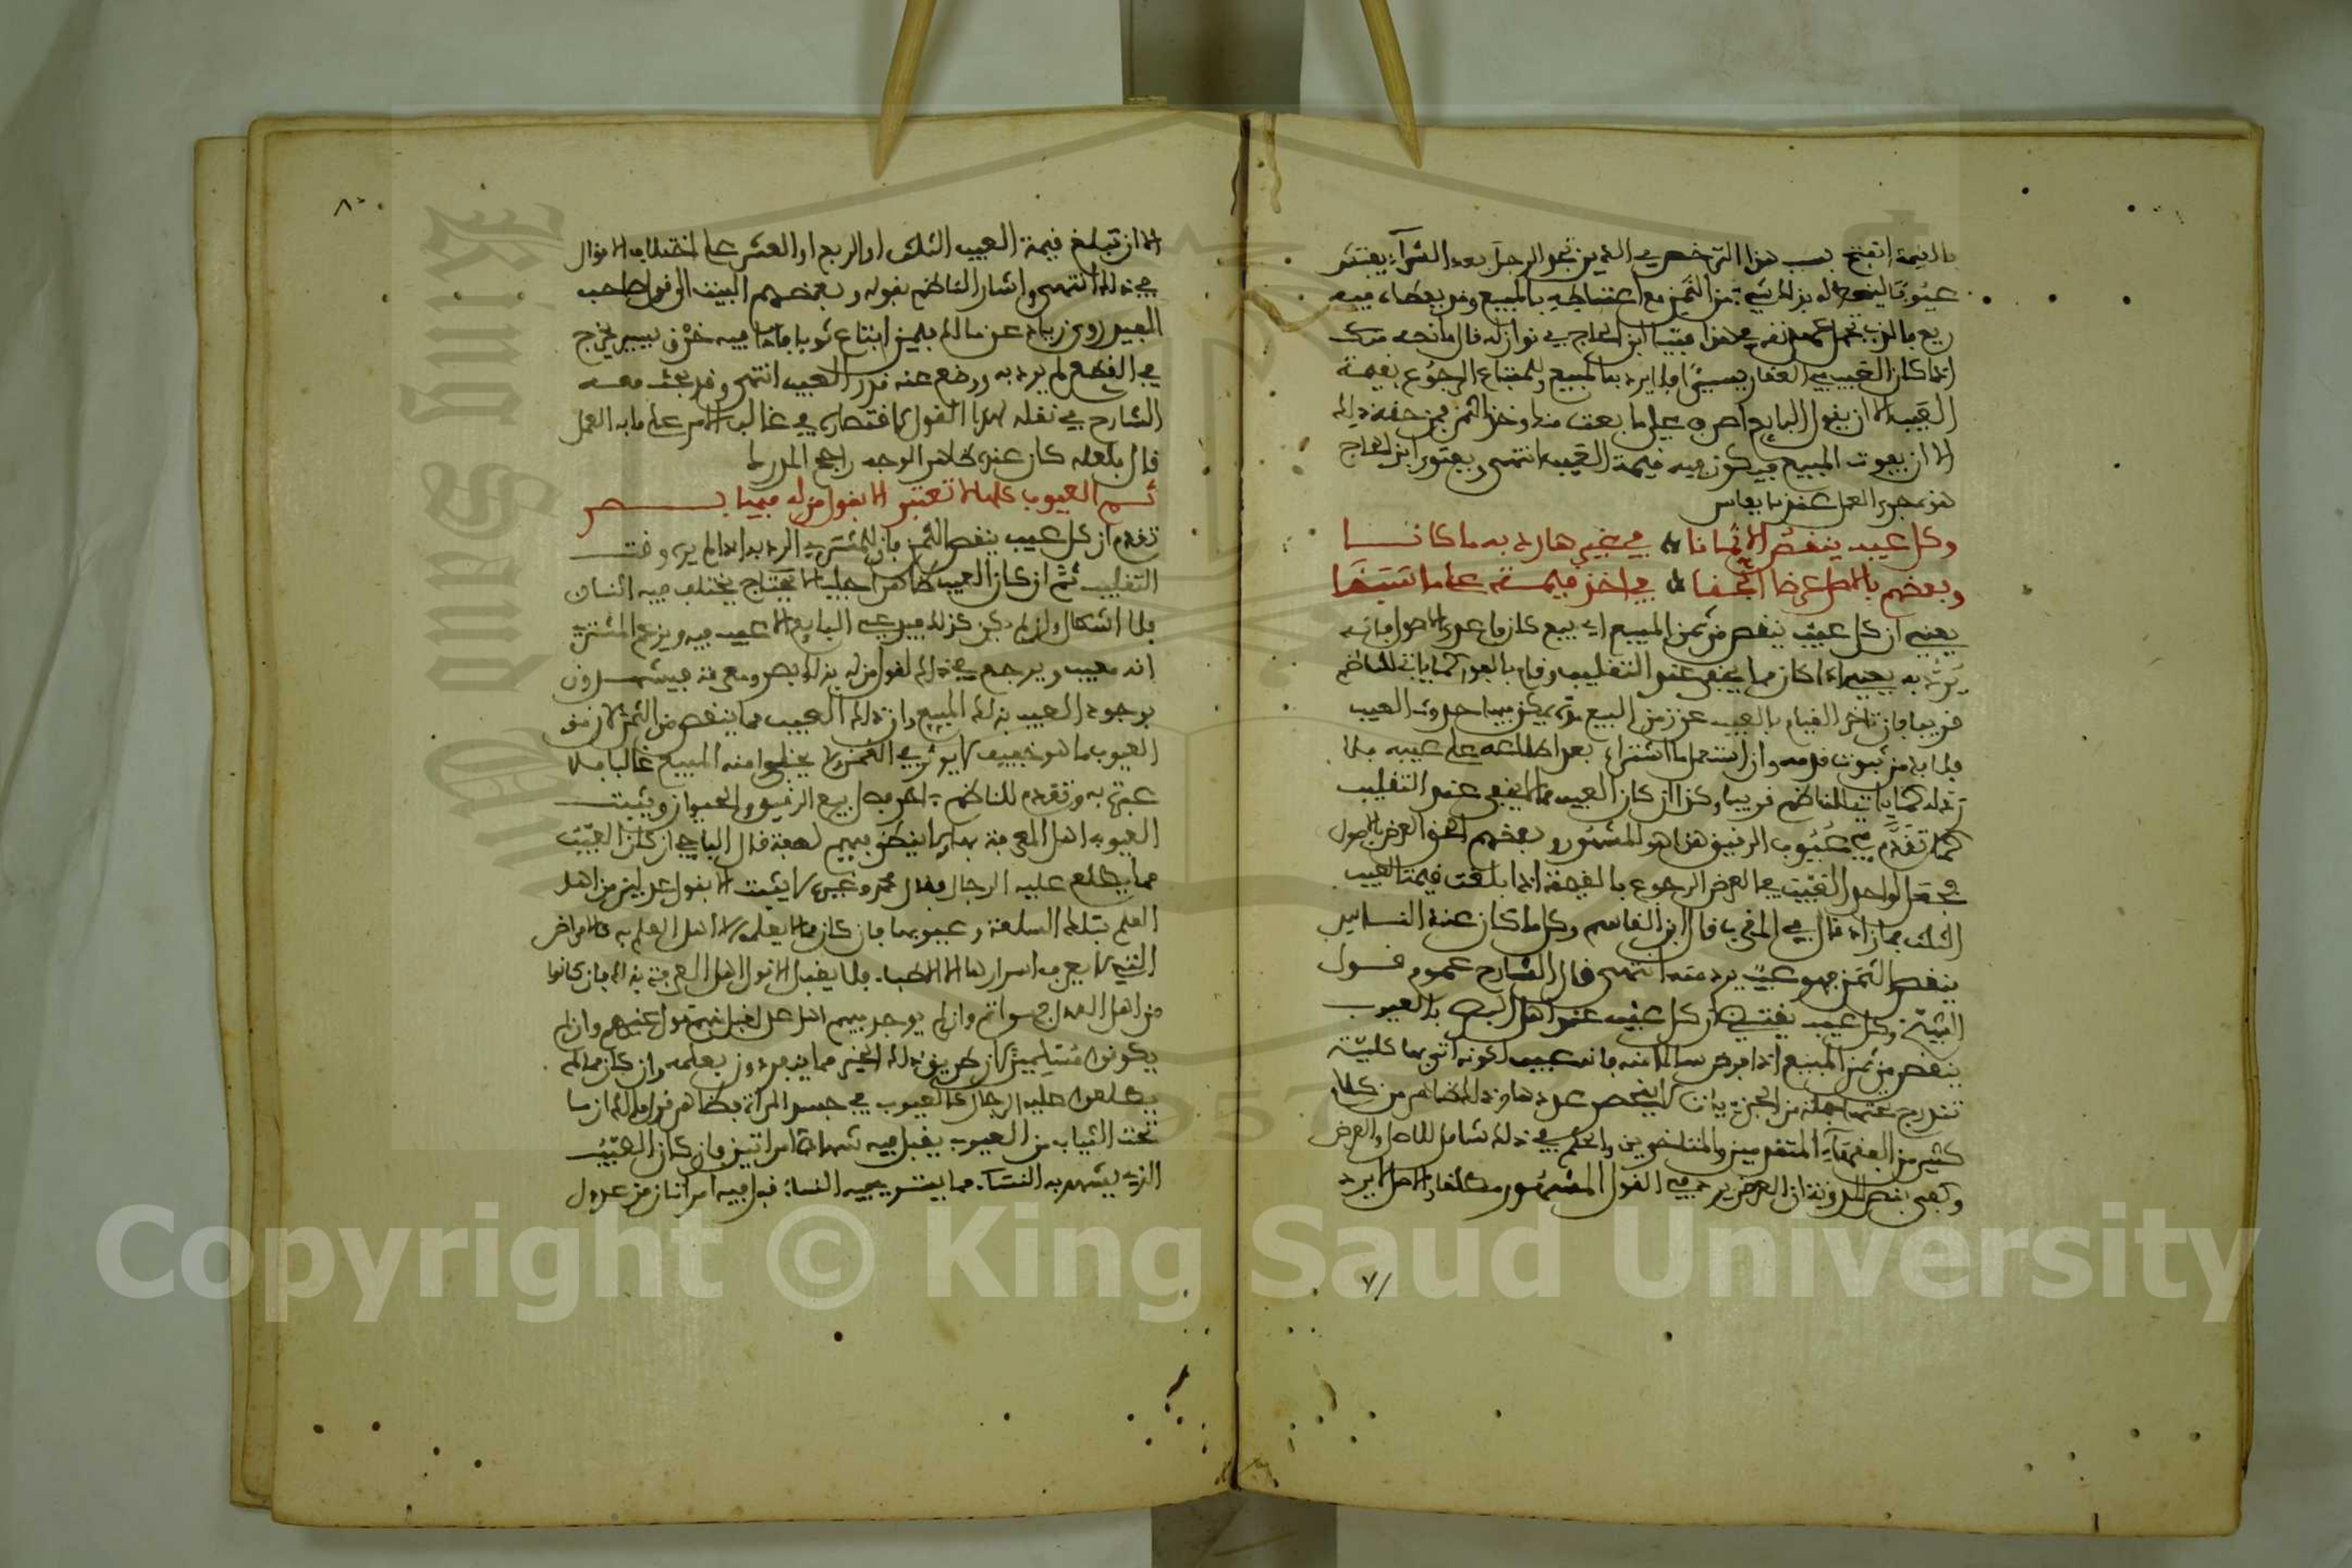 بالقيمة انفتح بسب هذا الترخيص في الدين نحو الرجل بعد الشراء يفتش
عيوبا ليتوصل له بذلك شيء من الثمن مع اغتباطه بالمبيع وقد يعطاء فيه
ريع ما لم يحمل في هذا فتيا ابن الحاج في نوازله قال ما نصه مرك
اذا كان العيب في العقار يسيرا فلا يرد به المبيع وللمبتاع الرجوع بقيمة
العيب الا ان يقول البايع اصرف علي ما بعت منك وخذ الثمن فمن حقه ذلك
الا ان يفوت المبيع فيكون فيه قيمة العيب انتهى وبفتوى ابن الحاج
هذه جرى العمل عندنا بفاس
وكل عيب ينقص الاثمانا في غيرها رد به ما كانا
وبعضهم بالاصل عرضا الحقا في اخذ قيمة على ما سبقا
يعني ان كل عيب ينقص من ثمن المبيع اي بيع كان ما عدى الاصول فانه
يرد به يعني اذا كان مما يخفى عند التقليب وقام بالفور كما ياتي للناظم
قريبا فان تاخر القيام بالعيب عن زمن البيع مدة يمكن فيها حدوث العيب
فلا بد من ثبوت قدمه وان استعمل ما اشتراه بعد اطلاعه على عيبه فلا
رد له كما ياتي للناظم قريبا وكذا ان كان العيب مما لا يخفى عند التقليب
كما تقدم في عيوب الرقيق هذا هو المشهور وبعضهم الحق العرض بالاصول
فجعل لواجد العيب في العرض الرجوع بالقيمة اذا بلغت قيمة العيب
الثلث فما زاد قال في المقرب قال ابن القاسم وكل ما كان عند الناس
ينقص الثمن فهو عيب يرد منه انتهى قال الشارح عموم قول
الشيخ وكل عيب يقتضي ان كل عيب عند اهل البصر بالعيوب
ينقص من ثمن المبيع اذا فرض سالما منه فانه عيب لكونه اتى بها كلية
تندرج تحتها جملة من الجزئيات لا ينحصر عددها وذلك الظاهر من كلام
كثير من الفقهاء المتقدمين والمتاخرين والحكم في ذلك شامل للاصل والعرض
وكفى بنص المدونة ان العرض يرد في القول المشهور مطلقا والاصل لا يرد
٧/
٨٠
الا ان تبلغ قيمة العيب الثلث او الربع او العشر على اختلاف الاقوال
في ذلك انتهى واشار الناظم بقوله وبعضهم البيت الى قول صاحب
المفيد روى زياد عن مالك فيمن ابتاع ثوبا فاذا فيه خرق يسير يخرج
في القطع لم يرد به ووضع عنه قدر العيب انتهى وقد بحث معه
الشارح في نقله لهذا القول مع اقتصاره في غالب الامر على ما به العمل
قال فلعله كان عنده ظاهر الوجه راجح المدرك
ثم العيوب كلها لا تعتبر الا بقول من له فيها بصر
تقدم ان كل عيب ينقص الثمن فان للمشتري الرد به اذا لم يره وقت
التقليب ثم ان كان العيب ظاهرا جليا لا يحتاج يختلف فيه اثنان
فلا اشكال وان لم يكن كذلك فيدعي البايع الا عيب فيه ويزعم المشتري
انه معيب ويرجع في ذلك لقول من له بذلك بصر ومعرفة فيشهدون
بوجود العيب بذلك المبيع وان ذلك العيب مما ينقص من الثمن لان من
العيوب ما هو خفيف لا يوثر في الثمن ولا يخلوا منه المبيع غالبا فلا
عبرة به وتقدم للناظم اخر فصل بيع الرقيق والحيوان ويثبت
العيوب اهل المعرفة بها لا ينظر فيهم لصفة قال الباجي ان كان العيب
مما يطلع عليه الرجال فقال محمد وغيره لا يثبت الا بقول عدلين من اهل
العلم بتلك السلعة وعيوبها فان كان مما لا يعلمه الا اهل العلم به كالامراض
التي لا يعرف اسرارها الا الاطباء فلا يقبل الا قول اهل المعرفة بذلك فان كانوا
من اهل العدل فهو اتم وان لم يوجد فيهم اهل عدل قبل فيه قول غيرهم وان لم
يكونوا مسلمين لان طريق ذلك الخبر مما ينفردون بعلمه وان كان مما لم
يطلعوا عليه الرجال كالعيوب في جسد المراة بظاهر قول مالك ان ما
تحت الثياب من العيوب يقبل فيه شهادة امراتين فان كان العيب
الذي يشهد به النساء مما يستوي فيه النساء قبل فيه امراتان من عدول
King Saud University
1957
Copyright © King Saud University